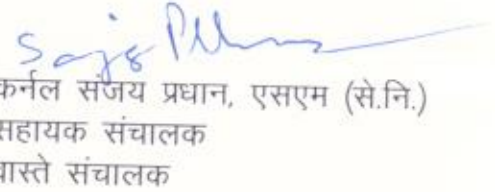 कर्नल संजय प्रधान, एसएम (से.नि.)
सहायक संचालक
वास्ते संचालक